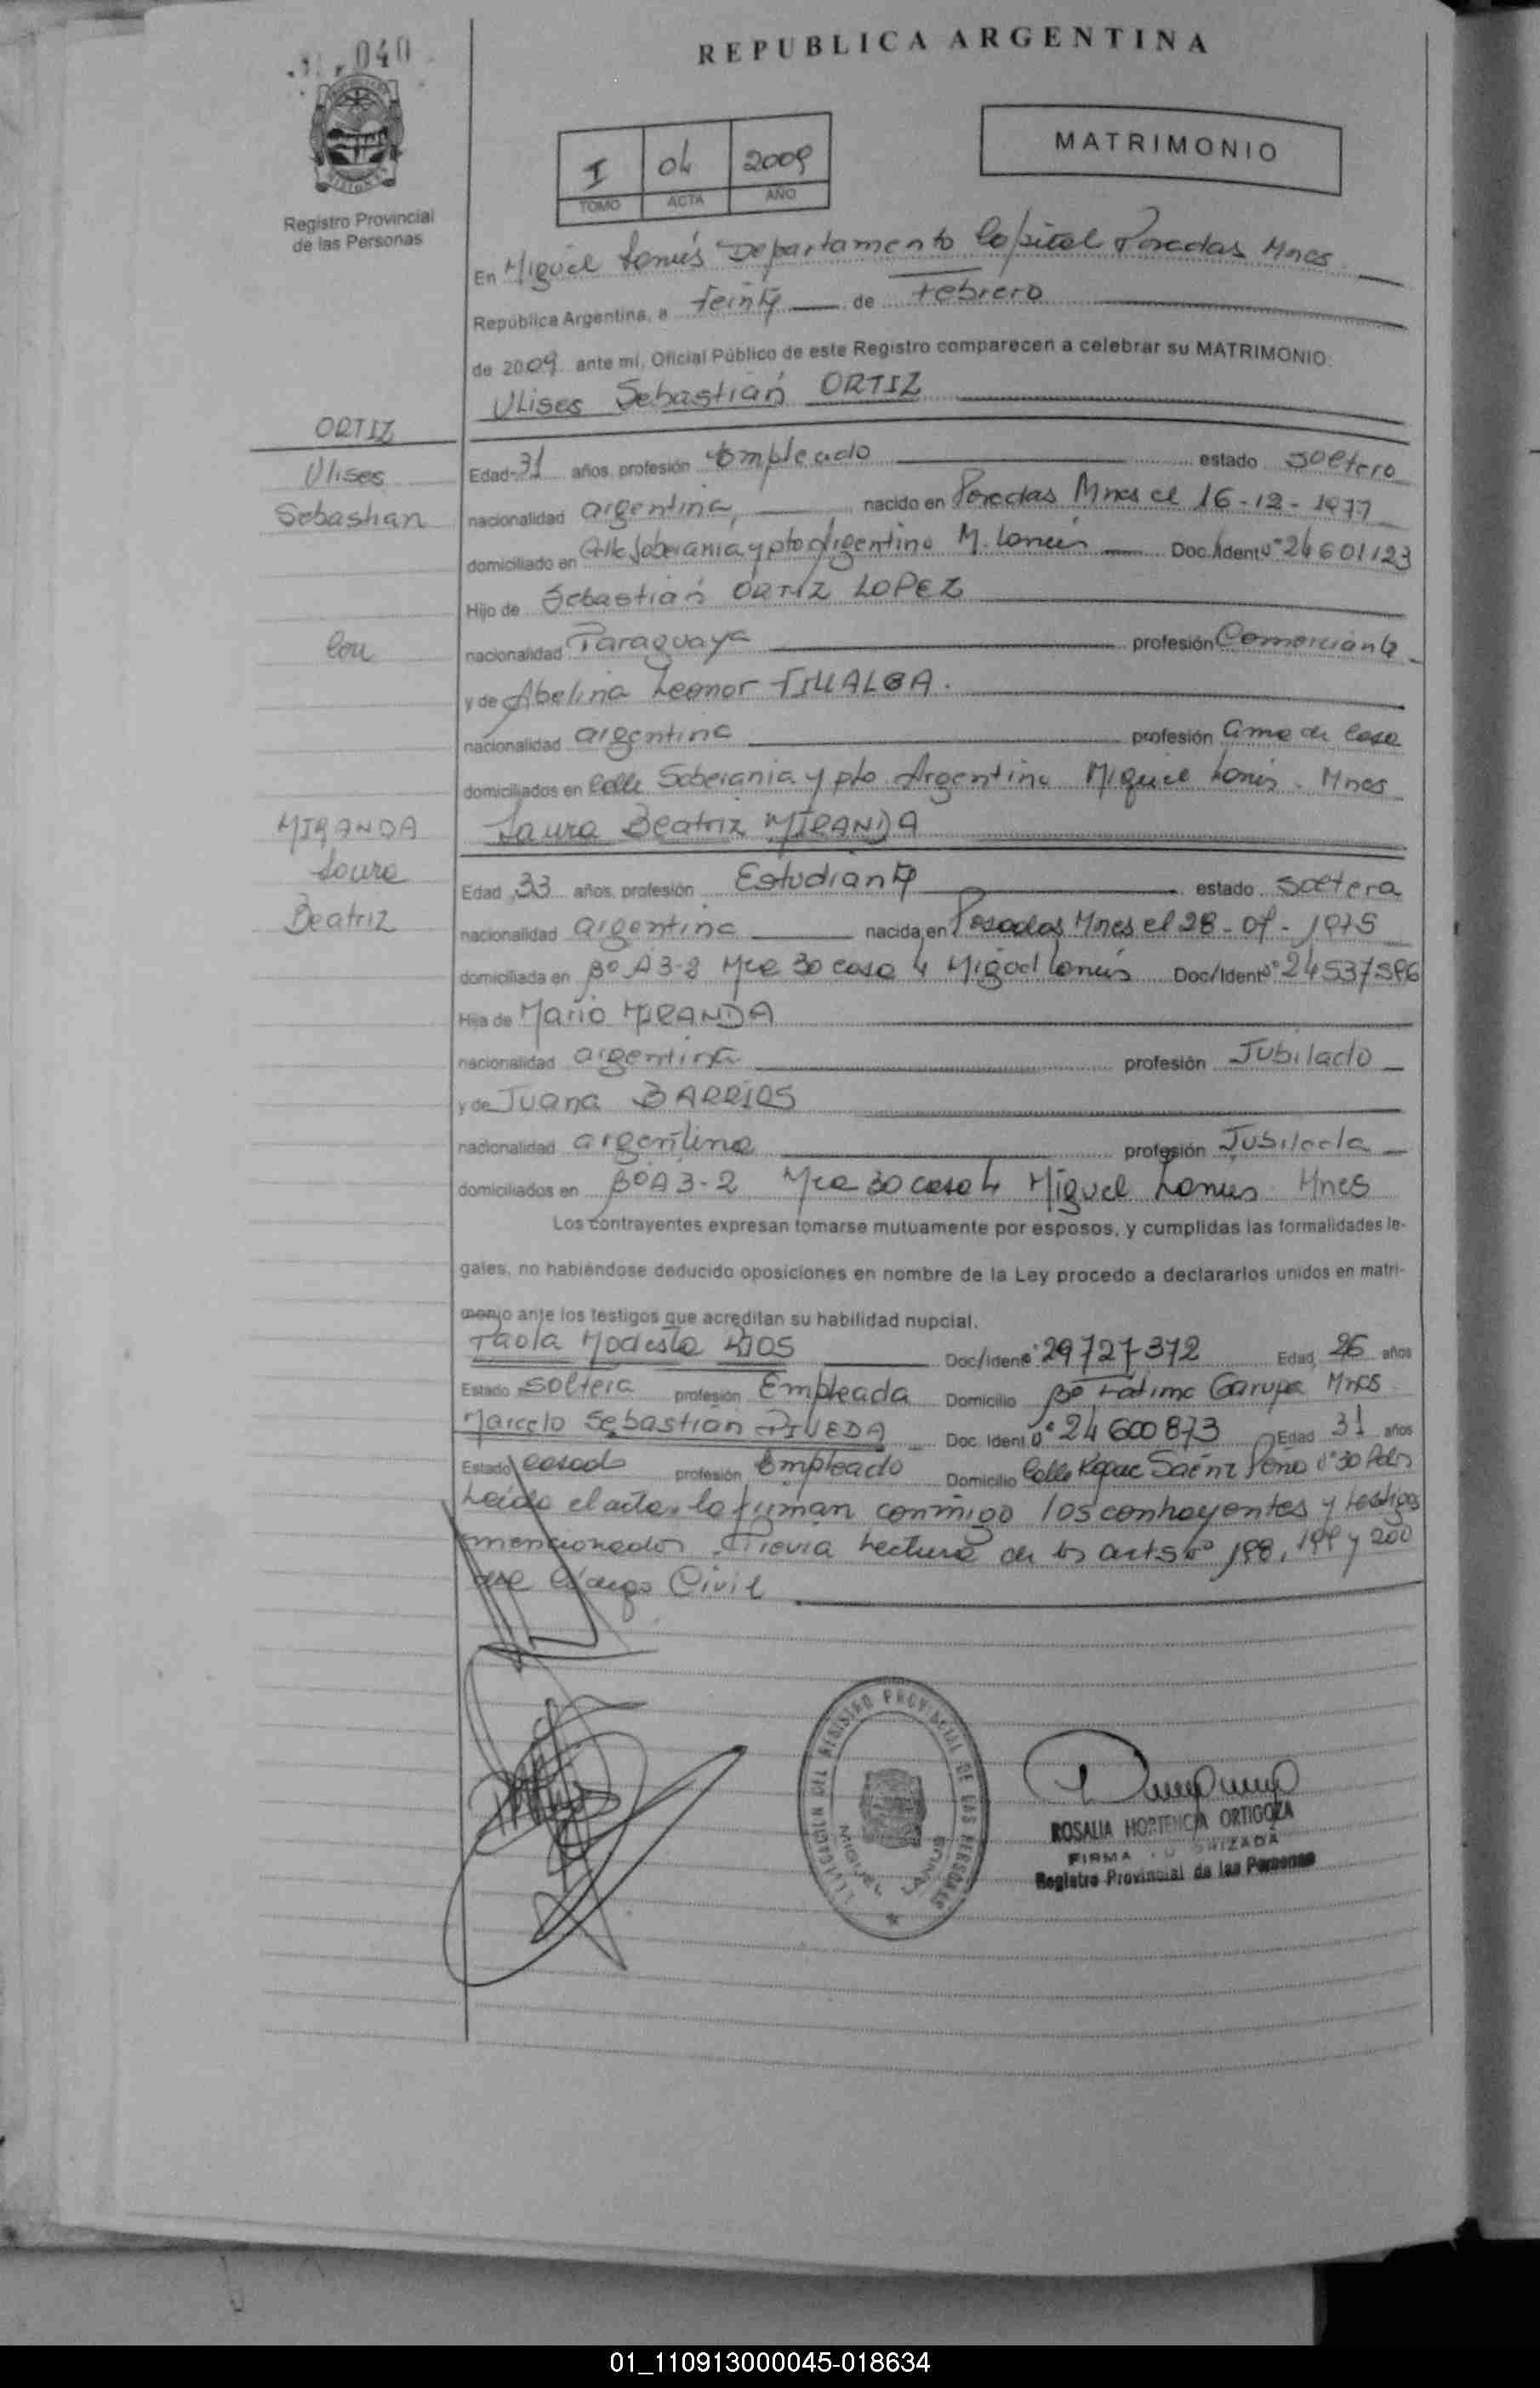 040
REPUBLICA ARGENTINA
I 04 2009
TOMO ACTA AÑO
MATRIMONIO
Registro Provincial
de las Personas
En Miguel Lanús Departamento Capital Posadas Mnes
República Argentina, a de Febrero
de 2009 ante mí, Oficial Público de este Registro comparecen a celebrar su MATRIMONIO:
Ulises Sebastián ORTIZ
ORTIZ
Ulises
Sebastian
Edad 31 años, profesión Empleado estado Soltero
nacionalidad argentina, nacido en Posadas Mnes el 16-12-1977
domiciliado en Calle Soberania y pto Argentino M. Lanús Doc./Ident n° 24601123
Hijo de Sebastián ORTIZ LOPEZ
Con
nacionalidad Paraguaya profesión Comerciante
y de Abelina Leonor
nacionalidad argentina profesión ama de Casa
domiciliados en Calle Soberania y pto Argentino Miguel Lanús - Mnes
Laura Beatriz MIRANDA
MIRANDA
Laura
Beatriz
Edad 33 años, profesión Estudiante estado Soltera
nacionalidad argentina nacida en Posadas Mnes el 28-07-1975
domiciliada en B° A3-2 Mza 30 casa 4 Miguel Lanús Doc/Ident n° 24537586
Hija de Mario MIRANDA
nacionalidad argentina profesión Jubilado
y de Juana BARRIOS
nacionalidad argentina profesión Jubilada
domiciliados en B° A3-2 Mza 30 casa 4 Miguel Lanus Mnes
Los contrayentes expresan tomarse mutuamente por esposos, y cumplidas las formalidades le-
gales, no habiéndose deducido oposiciones en nombre de la Ley procedo a declararlos unidos en matri-
monio ante los testigos que acreditan su habilidad nupcial.
Paola Modesta RIOS Doc/Ident n° 29727372 Edad 26 años
Estado Soltera profesión Empleada Domicilio B° Fatima Garupa Mnes
Marcelo Sebastian PINEDA Doc. Ident n° 24600873 Edad 31 años
Estado Casado profesión Empleado Domicilio Calle Roque Saénz Peña n° 30 Pdas
Leida el acta, la firman conmigo los contrayentes y testigos
mencionados. Previa Lectura de los arts n° 198, 199 y 200
del Código Civil
DELEGACION DEL REGISTRO PROVINCIAL DE LAS PERSONAS
MIGUEL LANUS
ROSALIA HORTENCIA ORTIGOZA
FIRMA AUTORIZADA
Registro Provincial de las Personas
01_110913000045-018634